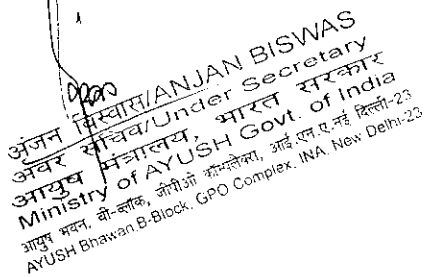 अंजन बिस्वास/ANJAN BISWAS
अवर सचिव/Under Secretary
आयुष मंत्रालय, भारत सरकार
Ministry of AYUSH Govt. of India
आयुष भवन, बी-ब्लॉक, जीपीओ कॉम्प्लेक्स, आई.एन.ए. नई दिल्ली-23
AYUSH Bhawan, B-Block, GPO Complex, INA, New Delhi-23